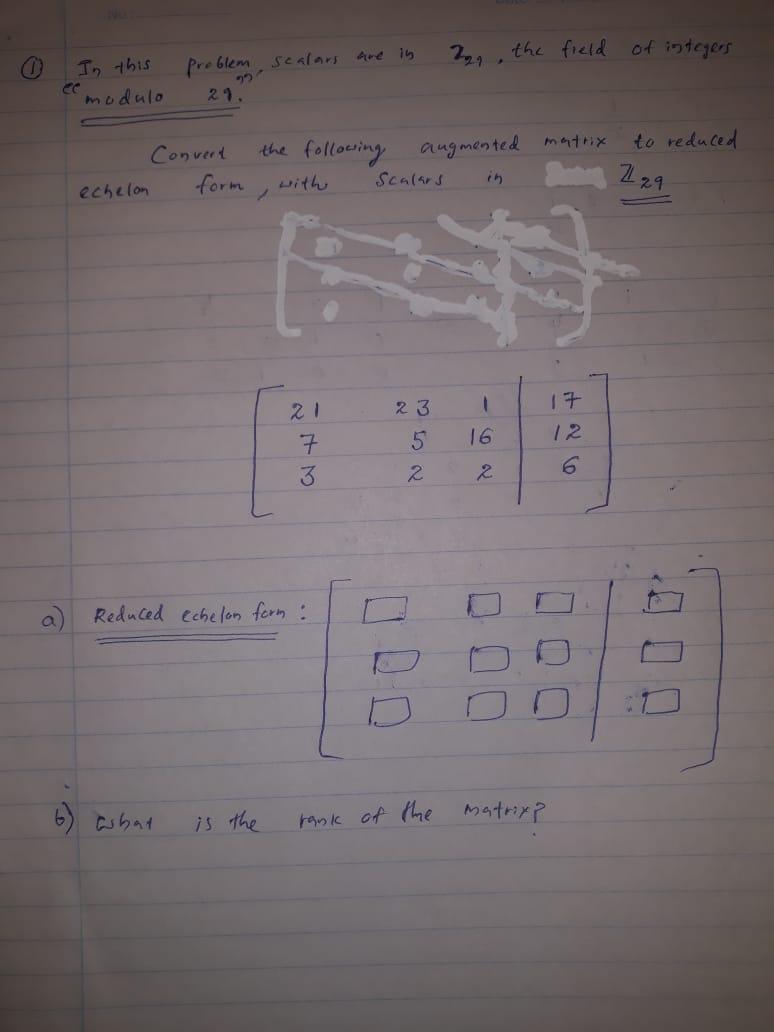 ① In this problem, scalars are in Z29, the field of integers
"modulo 29."
Convert the following augmented matrix to reduced
echelon form, with Scalars in Z29
21 23 1 17
7 5 16 12
3 2 2 6
a) Reduced echelon form :
b) What is the rank of the matrix?